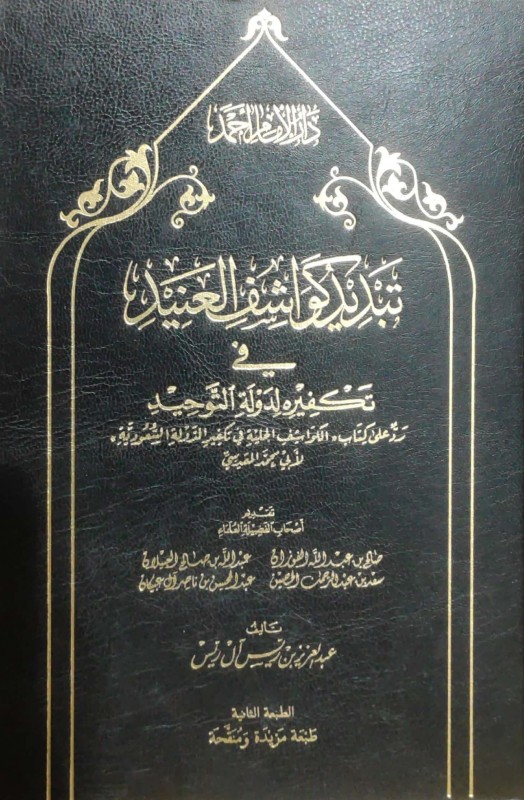 دار الإمام أحمد
تبديد كواشف العنيد
في
تكفيره لدولة التوحيد
رد على كتاب «الكواشف الجلية في تكفير الدولة السعودية»
لأبي محمد المقدسي
تقديم
أصحاب الفضيلة العلماء
صالح بن عبد الله الفوزان عبد الله بن صالح العبيلان
سعد بن عبد الرحمن الحصين عبد المحسن بن ناصر آل عبيكان
تأليف
عبد العزيز بن ريس آل ريس
الطبعة الثانية
طبعة مزيدة ومنقحة